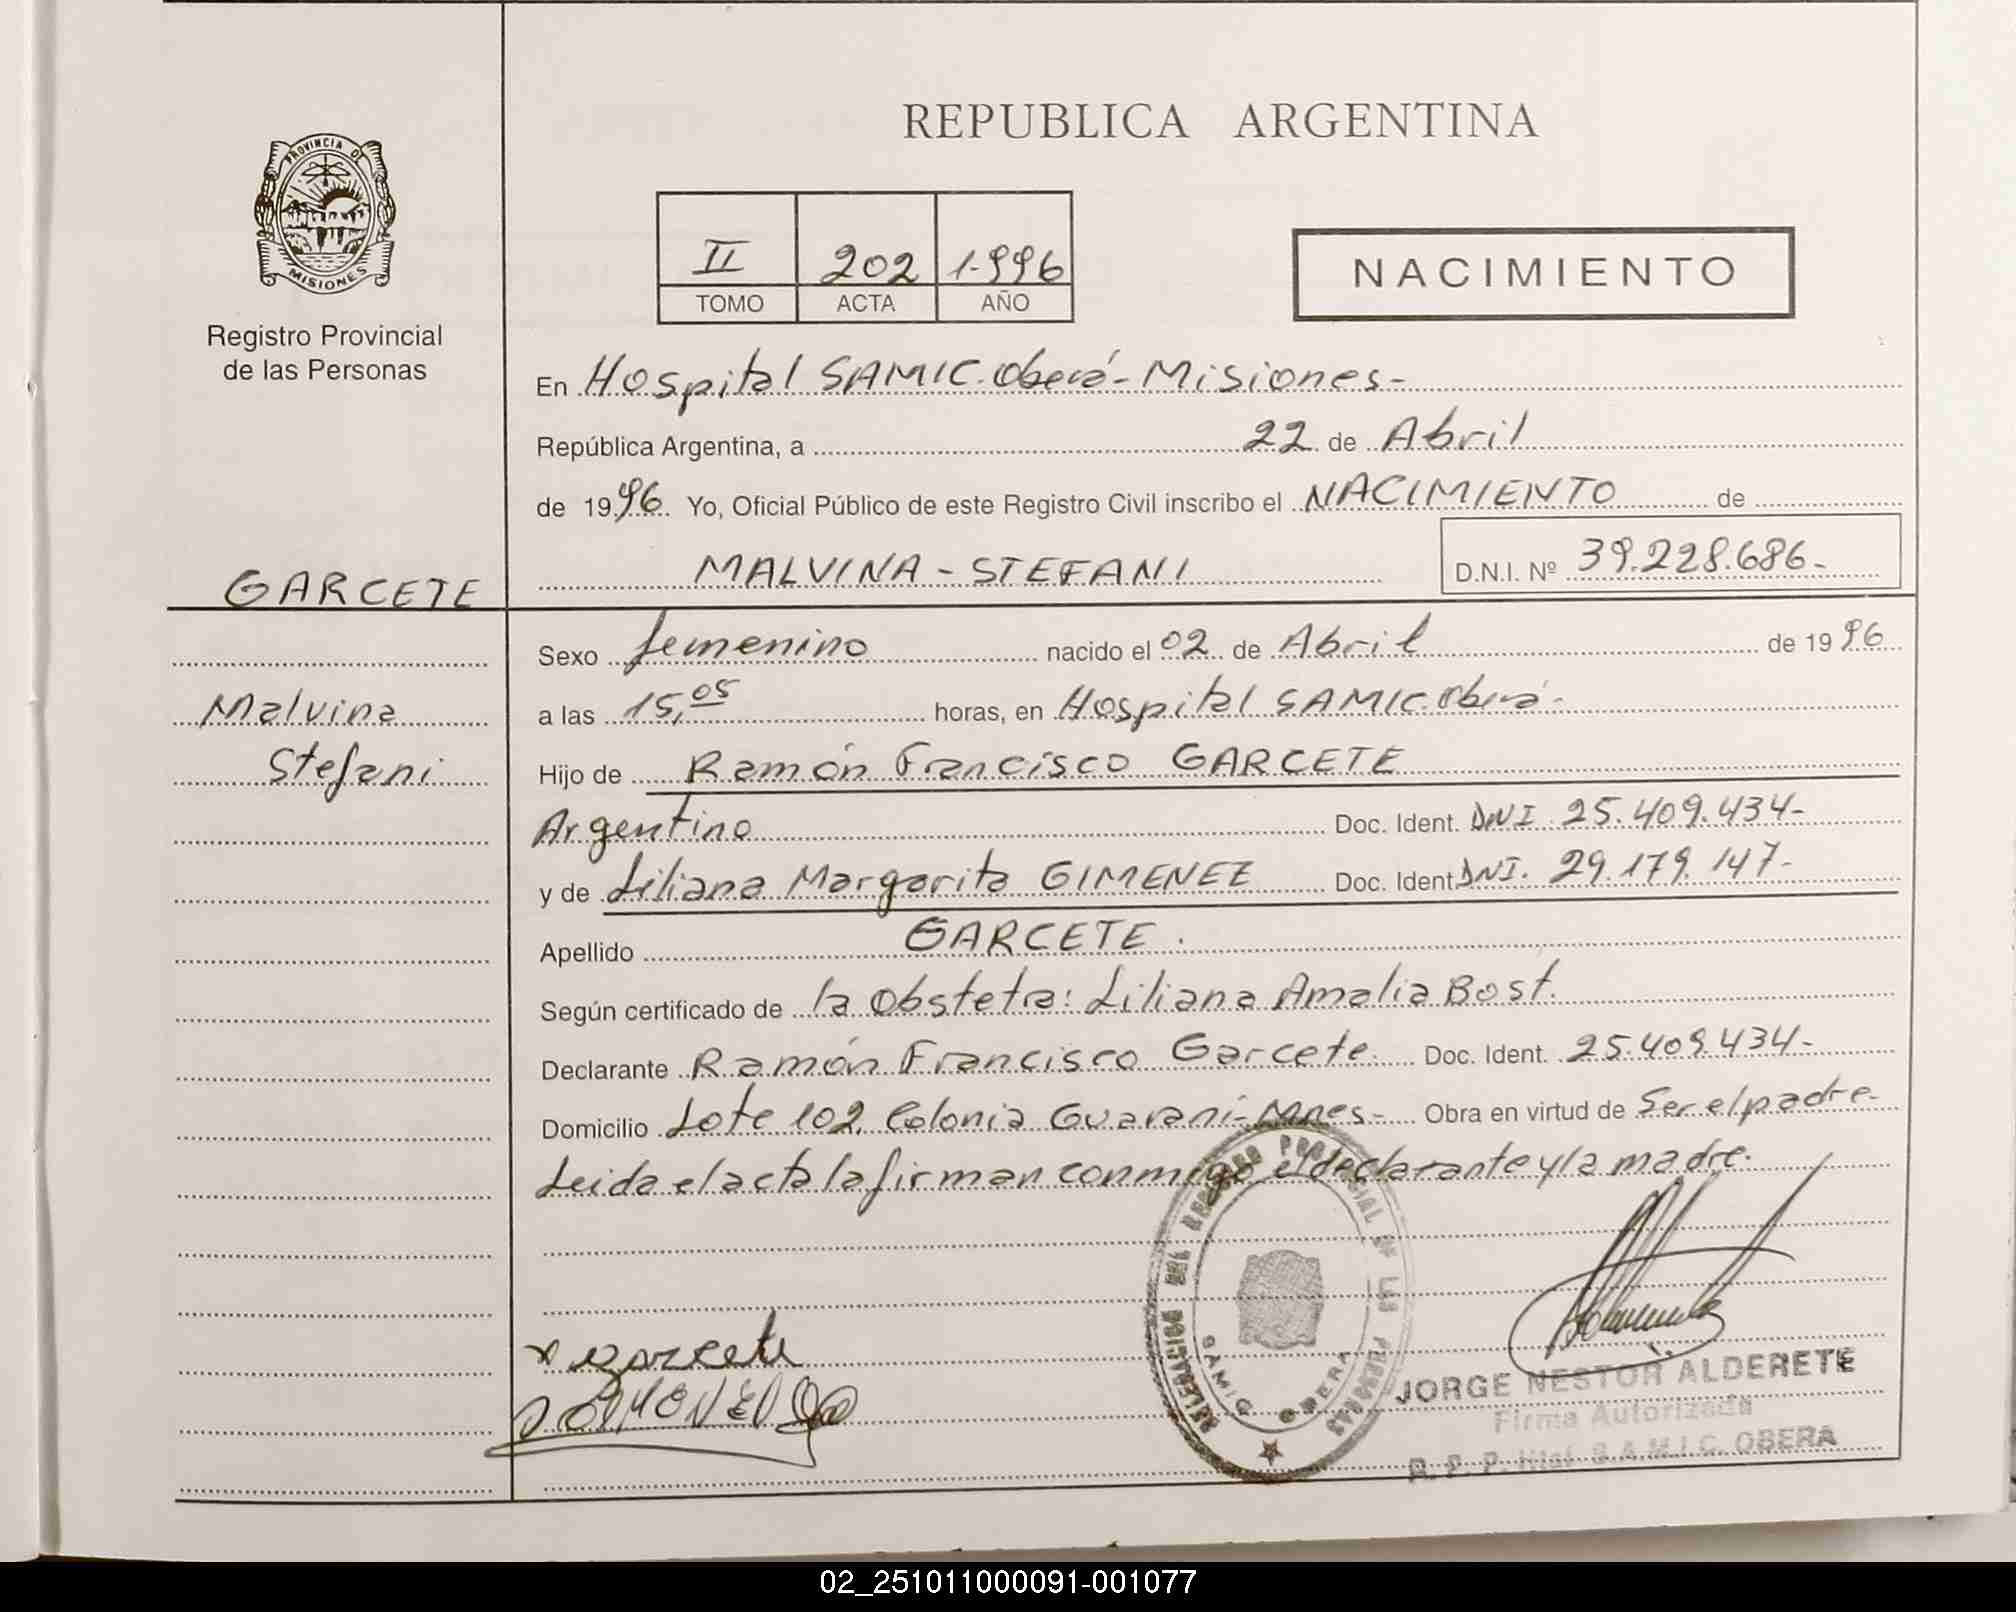 REPUBLICA ARGENTINA
PROVINCIA DE
MISIONES
Registro Provincial
de las Personas
II 202 1.996
TOMO ACTA AÑO
NACIMIENTO
En Hospital SAMIC. Oberá - Misiones -
República Argentina, a 22 de Abril
de 1996 Yo, Oficial Público de este Registro Civil inscribo el NACIMIENTO de
MALVINA - STEFANI D.N.I. Nº 39.228.686.-
GARCETE
Malvina
Stefani
Sexo femenino nacido el 02 de Abril de 1996
a las 15,05 horas, en Hospital SAMIC. Oberá -
Hijo de Ramón Francisco GARCETE
Argentino Doc. Ident. DNI 25.409.434-
y de Liliana Margarita GIMENEZ Doc. Ident DNI. 29.179.147-
Apellido GARCETE.
Según certificado de la Obsteta: Liliana Amalia Bost.
Declarante Ramón Francisco Garcete. Doc. Ident. 25.409.434-
Domicilio Lote 102, Colonia Guaraní - Mnes - Obra en virtud de Ser el padre.
Leida el acta la firman conmigo el declarante y la madre.
DELEGACION DEL REGISTRO PROVINCIAL DE LAS PERSONAS
SAMIC OBERA
x garcete
JORGE NESTOR ALDERETE
Firma Autorizada
R. P. P. Htal S.A.M.I.C. OBERA
02_251011000091-001077